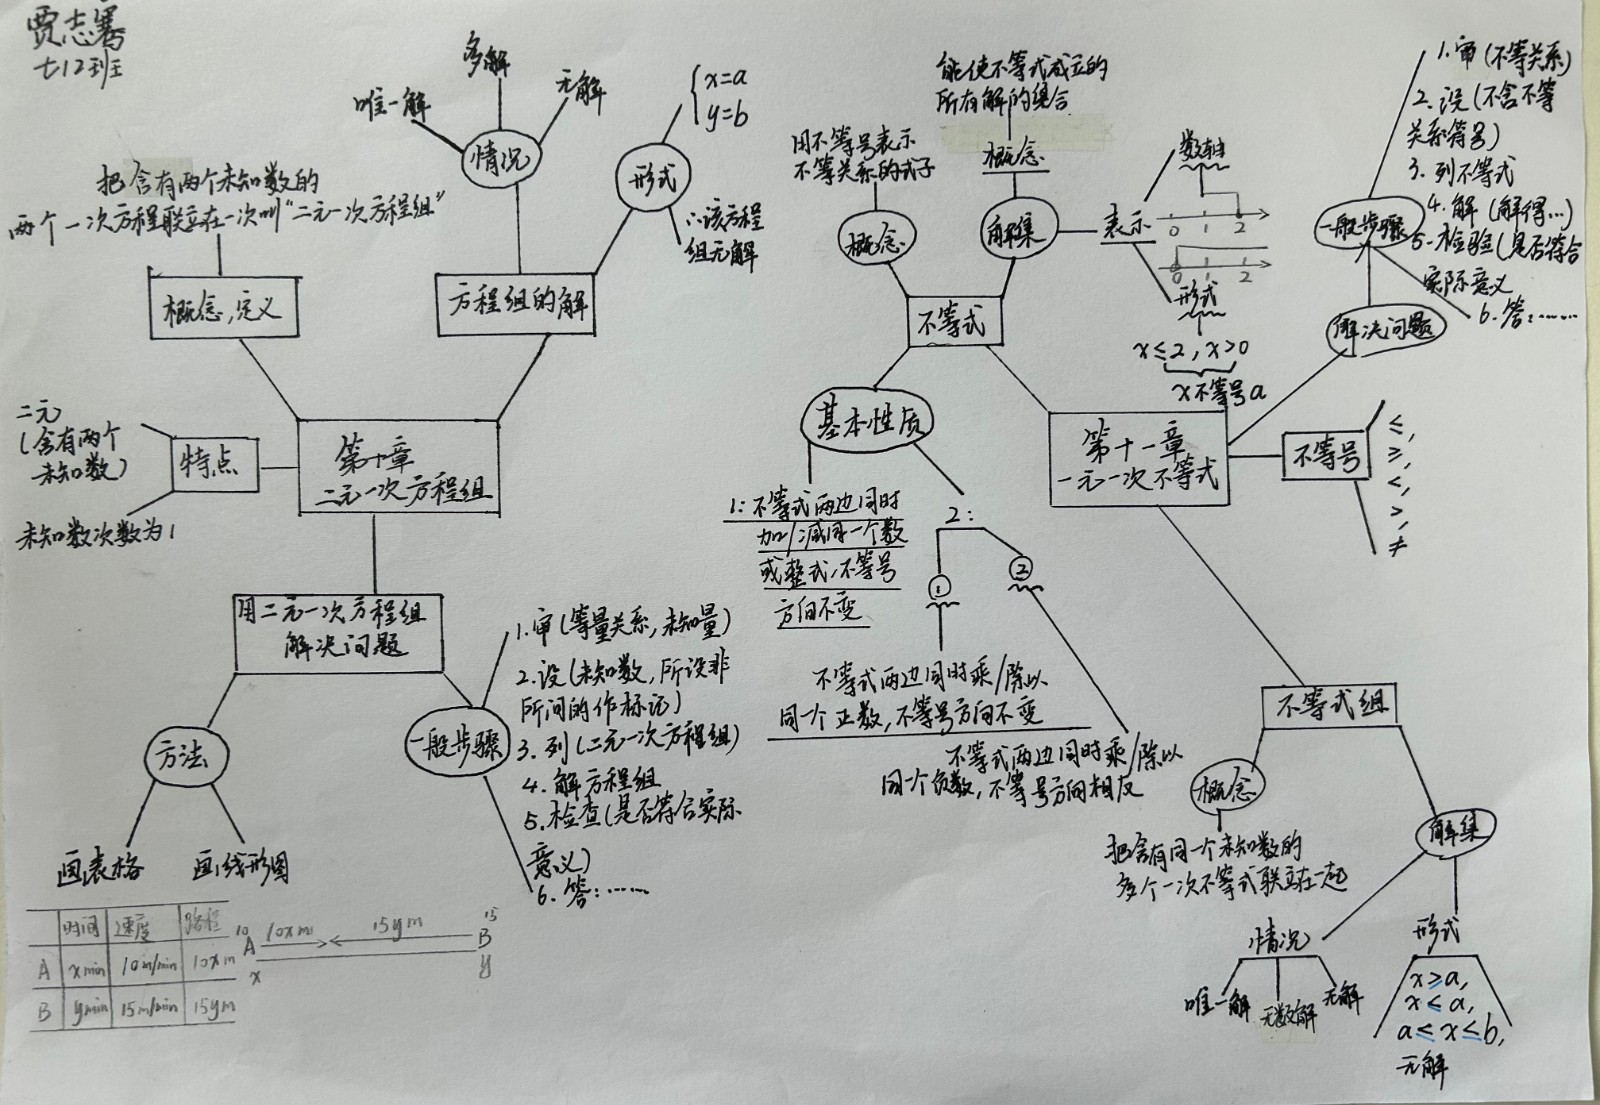 贾志骞
七12班
多解
唯一解
无解
情况
{x=a
y=b
形式
∴该方程
组无解
把含有两个未知数的
两个一次方程联立在一次叫“二元一次方程组”
概念,定义
方程组的解
二元
(含有两个
未知数)
特点
未知数次数为1
第十章
二元一次方程组
用二元一次方程组
解决问题
方法
画表格
画线形图
时间 速度 路程
A xmin 10m/min 10xm
B ymin 15m/min 15ym
10 10xm 15ym 15
A B
x y
一般步骤
1.审(等量关系,未知量)
2.设(未知数,所设非
所问的作标记)
3.列(二元一次方程组)
4.解方程组
5.检查(是否符合实际
意义)
6.答:……
能使不等式成立的
所有解的集合
用不等号表示
不等关系的式子
概念
概念
解集
表示
数轴
0 1 2
0 1 2
形式
x≤2,x>0
x不等号a
不等式
基本性质
1:不等式两边同时
加/减同一个数
或整式,不等号
方向不变
2:
①
②
不等式两边同时乘/除以
同一个正数,不等号方向不变
不等式两边同时乘/除以
同一个负数,不等号方向相反
第十一章
一元一次不等式
1.审(不等关系)
2.设(不含不等
关系符号)
3.列不等式
4.解(解得…)
5.检验(是否符合
实际意义
6.答:……
一般步骤
解决问题
不等号
≤,
≥,
<,
>,
≠
不等式组
概念
把含有同一个未知数的
多个一次不等式联立在一起
解集
情况
唯一解
无数解
无解
形式
x≥a,
x≤a,
a≤x≤b,
无解